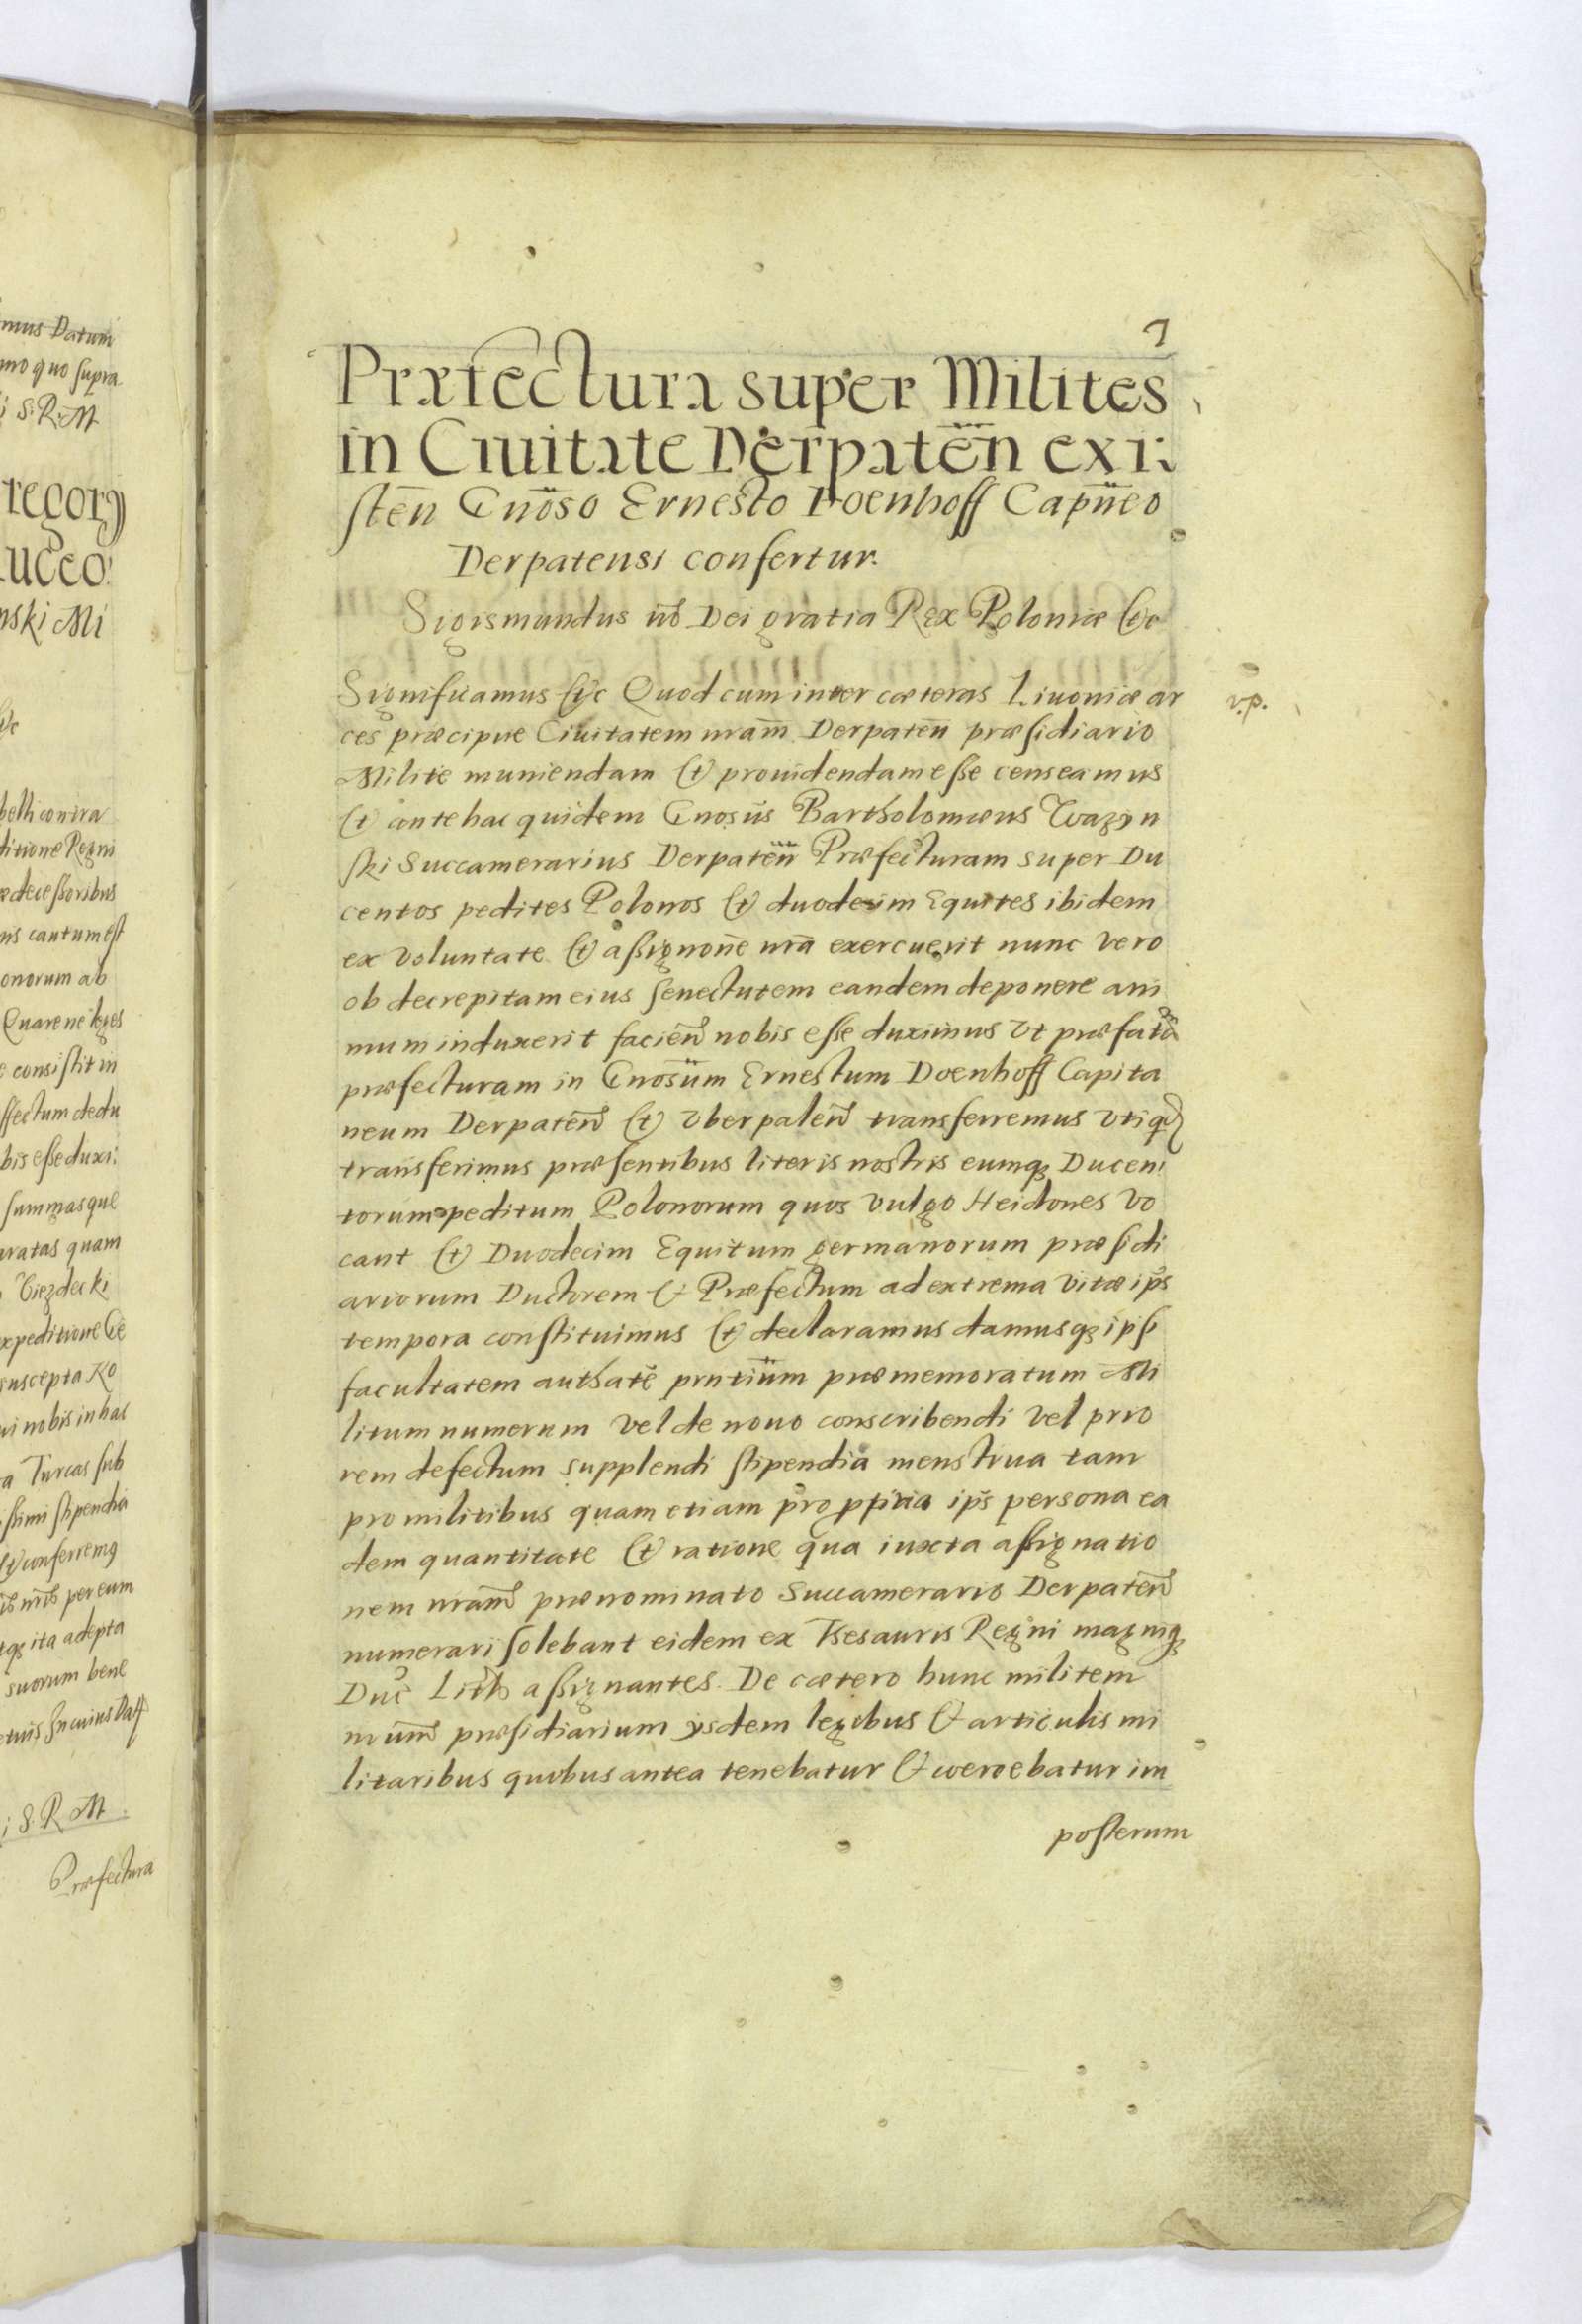 mus Datum
mo quo supra
i S. R. M
regorij
uceo:
nski Mi
&c
belli contra
ditione Regni
decessoribus
nis cautum est
onorum ab
Quare ne leges
e consistit in
ffectum dedu
bis esse duxi:
summasque
uratas quam
Ciezdecki
xpeditione Ge
suscepta Ko
ui nobis in hac
a Turcas sub
ssimi stipendia
& conferremq
ib nrib per eum
tqz ita adepta
suorum bene
etuis In cuius Datt
i S. R. M.
Præfectura
7
Præfectura super Milites
in Ciuitate Derpateñ exi:
steñ Gnoso Ernesto Doenhoff Capneo
Derpatensi confertur.
Sigismundus iiĩs Dei gratia Rex Poloniæ &c
Significamus &c Quod cum inter cæteras Liuoniæ ar
v.p.
ces præcipue Ciuitatem nram̃ Derpateñ præsidiario
Milite muniendam & prouidendam esse censeamus
& ante hac quidem Gnosus Bartholomæus Wazyn
ski Succamerarius Derpateñ Præfecturam super Du
centos pedites Polonos & duodecim Equites ibidem
ex voluntate & assignoñe nrã exercuerit nunc vero
ob decrepitam eius senectutem eandem deponere ani
mum induxerit facień nobis esse duximus vt præfatã
præfecturam in Gnosum Ernestum Doenhoff Capita
neum Derpateñ & Vberpaleñ transferremus vtiqz
transferimus præsentibus literis nostris eumqz Ducen:
torum peditum Polonorum quos vulgo Heidones vo
cant & Duodecim Equitum germanorum præsidi
ariorum Ductorem & Præfectum ad extrema vitæ ip̃s
tempora constituimus & declaramus damusqz ipsi
facultatem authatẽ pñtium præmemoratum Mi
litum numerum vel de nouo conscribendi vel prio
rem defectum supplendi stipendia menstrua tam
pro militibus quam etiam pro ppria ip̃s persona ea
dem quantitate & ratione qua iuxta assignatio
nem nram̃ prænominato Succamerario Derpateñ
numerari solebant eidem ex Thesauris Regni magniqz
Duc̃ Lith̃ assignantes. De cætero hunc militem
nrum̃ præsidiarium ijsdem legibus & articulis mi
litaribus quibus antea tenebatur & coercebatur im
posterum